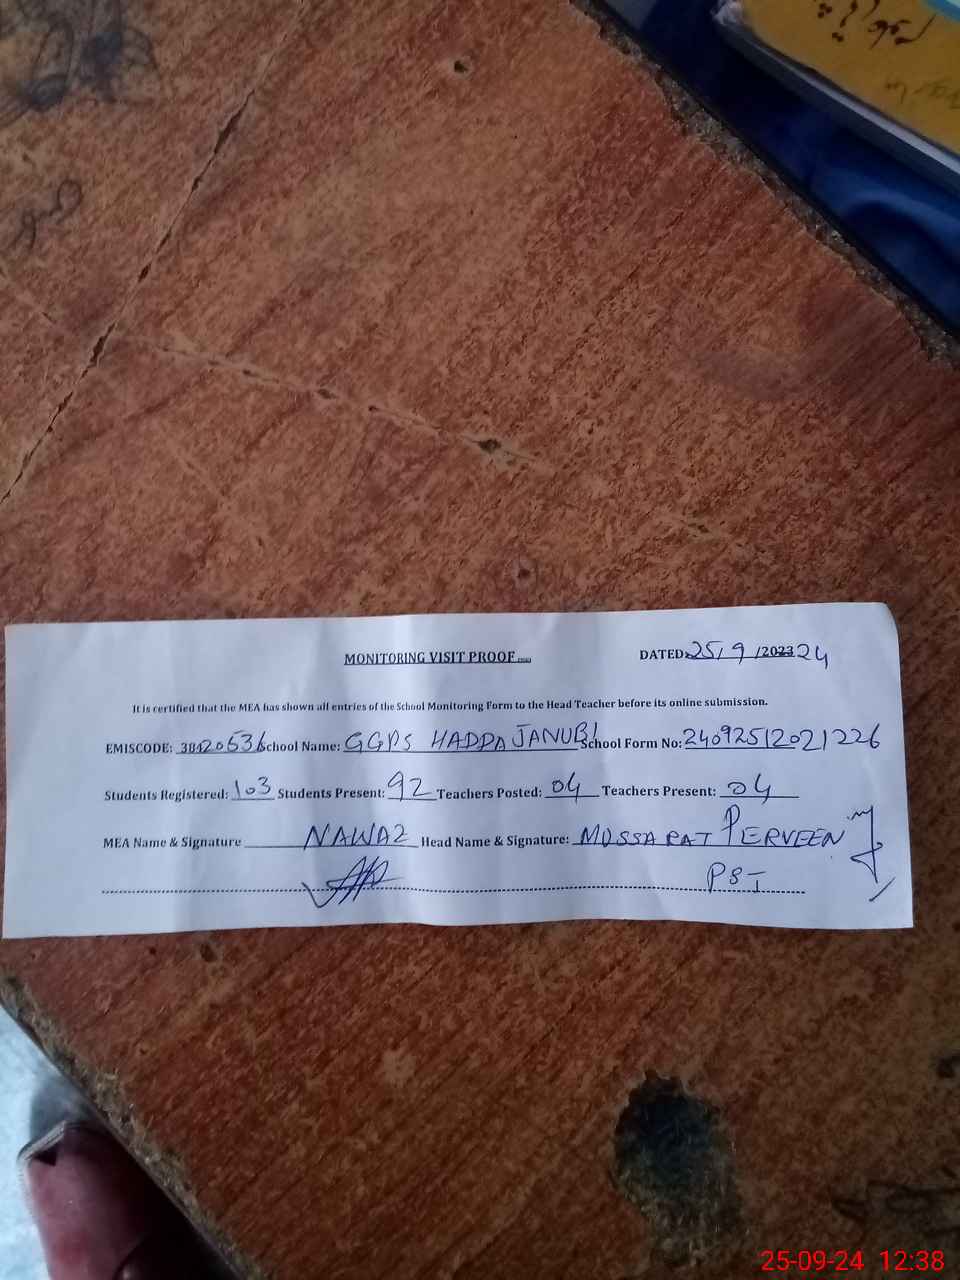 MONITORING VISIT PROOF
DATED: 25/9/202324
It is certified that the MEA has shown all entries of the School Monitoring Form to the Head Teacher before its online submission.
EMISCODE: 38420536 School Name: GGPS HADDA JANUBI School Form No: 24092512021226
Students Registered: 103 Students Present: 92 Teachers Posted: 04 Teachers Present: 04
MEA Name & Signature NAWAZ Head Name & Signature: MUSSARAT PERVEEN
PST
25-09-24 12:38